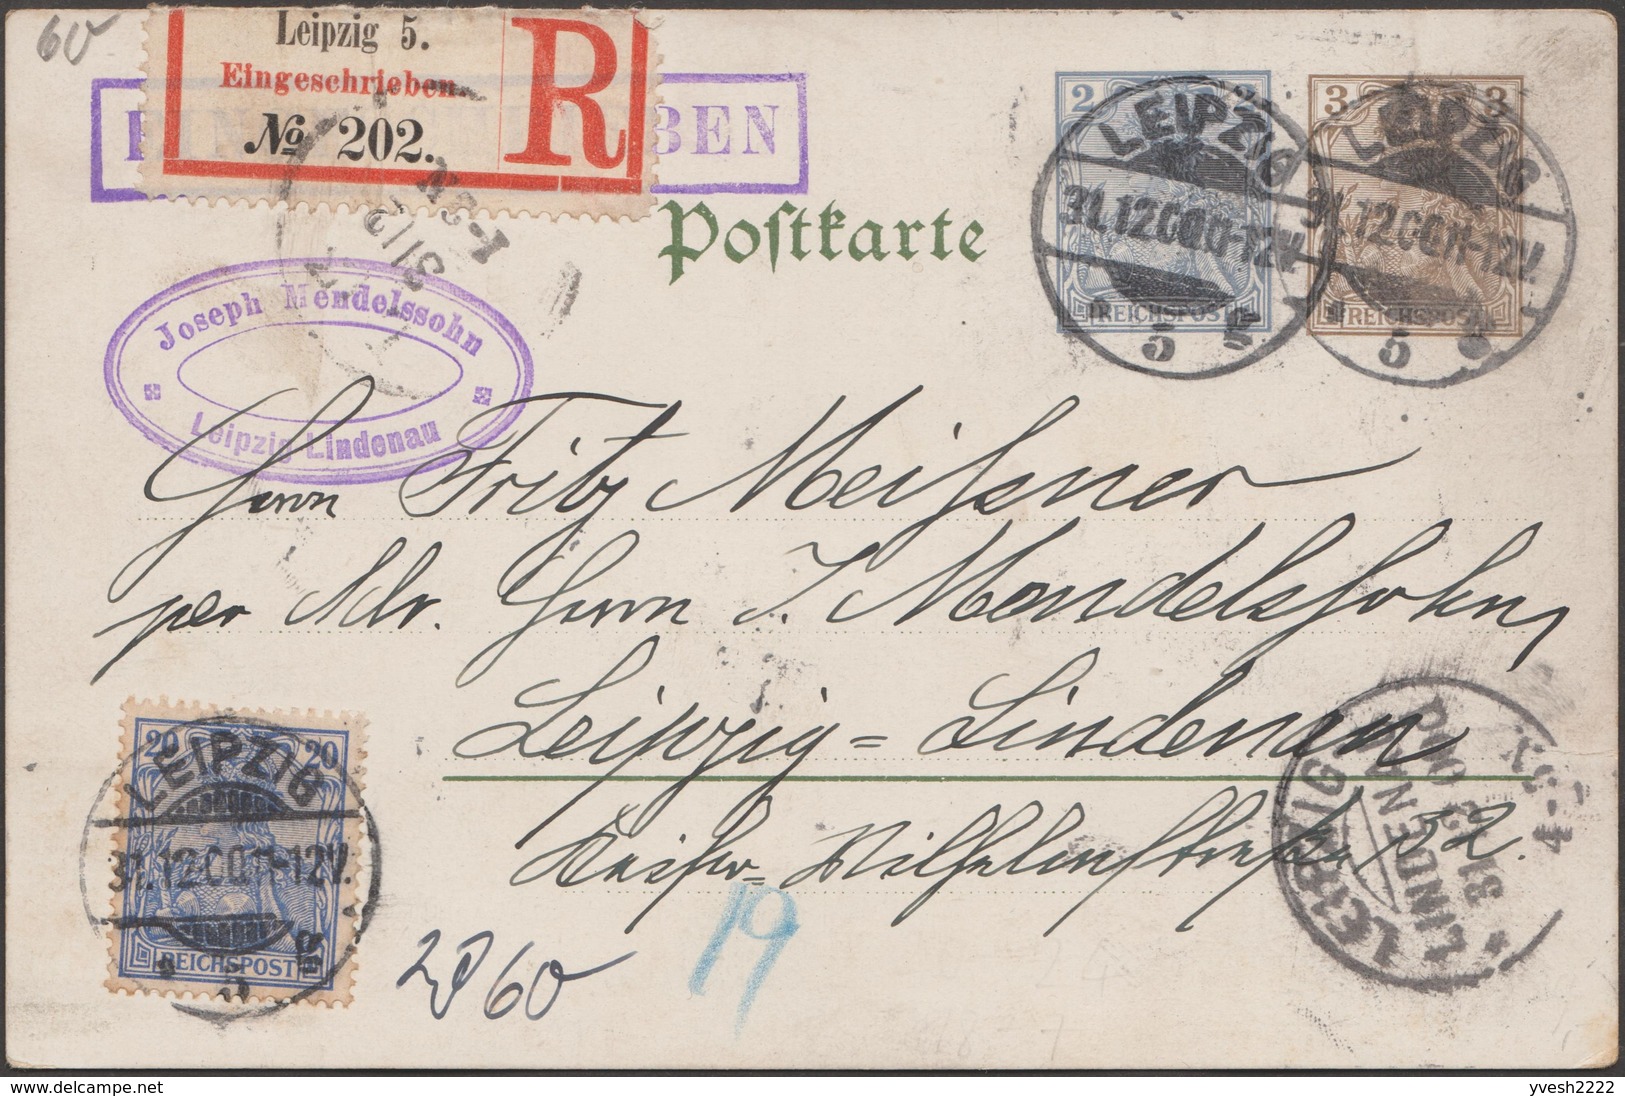 60
Leipzig 5.
Eingeschrieben.
№ 202.
R
BEN
Postkarte
2 2
REICHSPOST
3 3
REICHSPOST
LEIPZIG
31.12.00.11-12V.
5
LEIPZIG
31.12.00.11-12V.
5
Joseph Mendelssohn
Leipzig-Lindenau
31/12
1-2N
Herrn Fritz Meißner
per Adr. Herrn J. Mendelssohn,
Leipzig=Lindenau
Kaiser=Wilhelmstraße 52.
20 20
REICHSPOST
LEIPZIG
31.12.00.11-12V.
5
60
19
LEIPZIG-
LINDENAU
31.12.00
4-5N.
yvesh2222